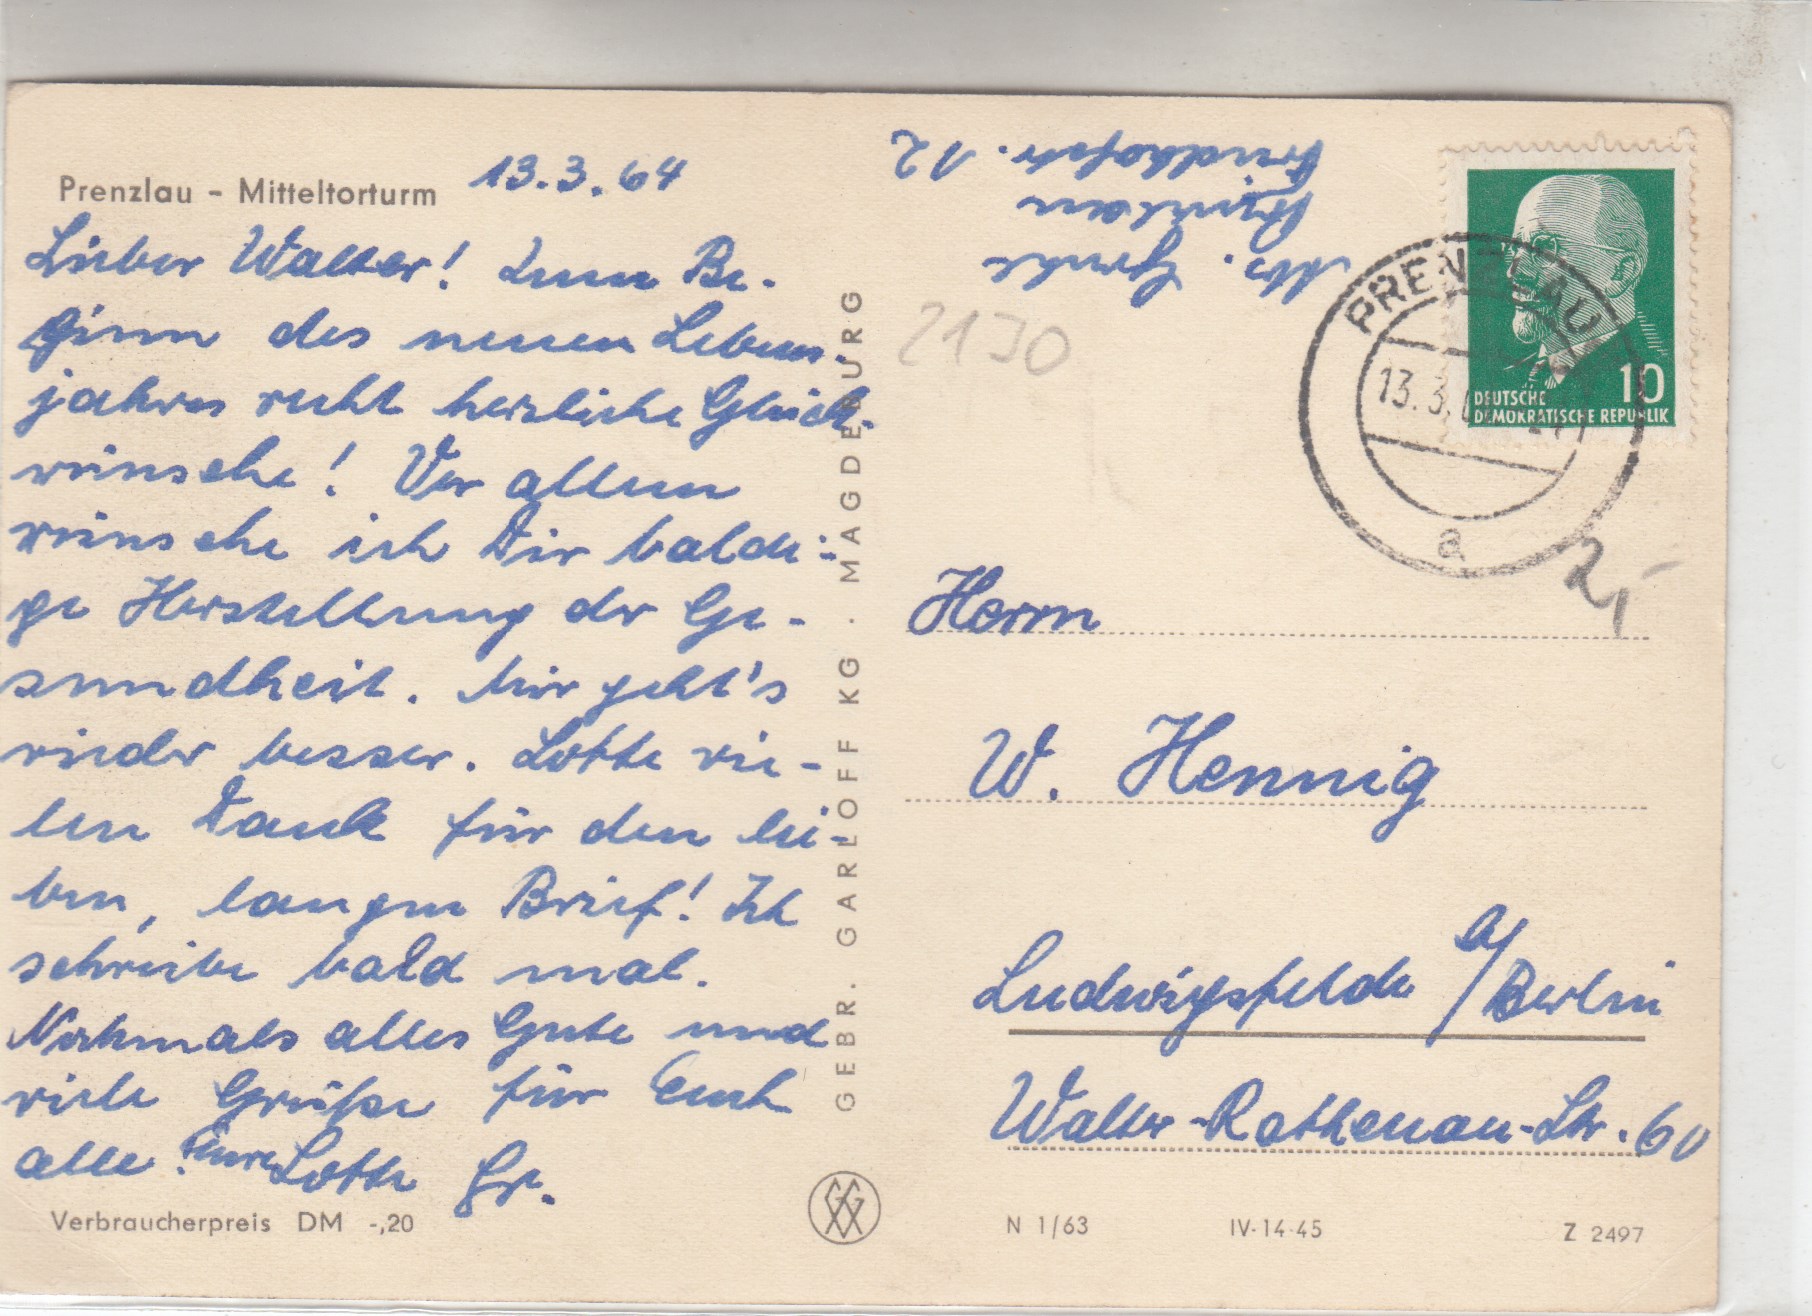 Prenzlau - Mitteltorturm
13.3.64
Lieber Walter! Zum Be-
ginn des neuen Lebens-
jahres recht herzliche Glück-
wünsche! Vor allem
wünsche ich Dir baldi-
ge Herstellung der Ge-
sundheit. Mir geht's
wieder besser. Lotte vie-
len Dank für den lie-
ben, langen Brief! Ich
schreibe bald mal.
Nochmals alles Gute und
viele Grüße für Euch
alle! Eure Lotte Gr.
Verbraucherpreis DM -,20
GEBR. GARLOFF KG . MAGDEBURG
Abs.
Friedhofstr. 12
2130
PRENZLAU
13.3.
a
10
DEUTSCHE
DEMOKRATISCHE REPUBLIK
2,-
Herrn
W. Hennig
Ludwigsfelde b/Berlin
Walter-Rathenau-Str. 60
N 1/63
IV-14-45
Z 2497